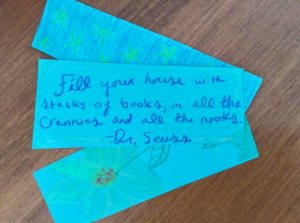 Fill your house with
stacks of books, in all the
crannies and all the nooks.
-Dr. Seuss